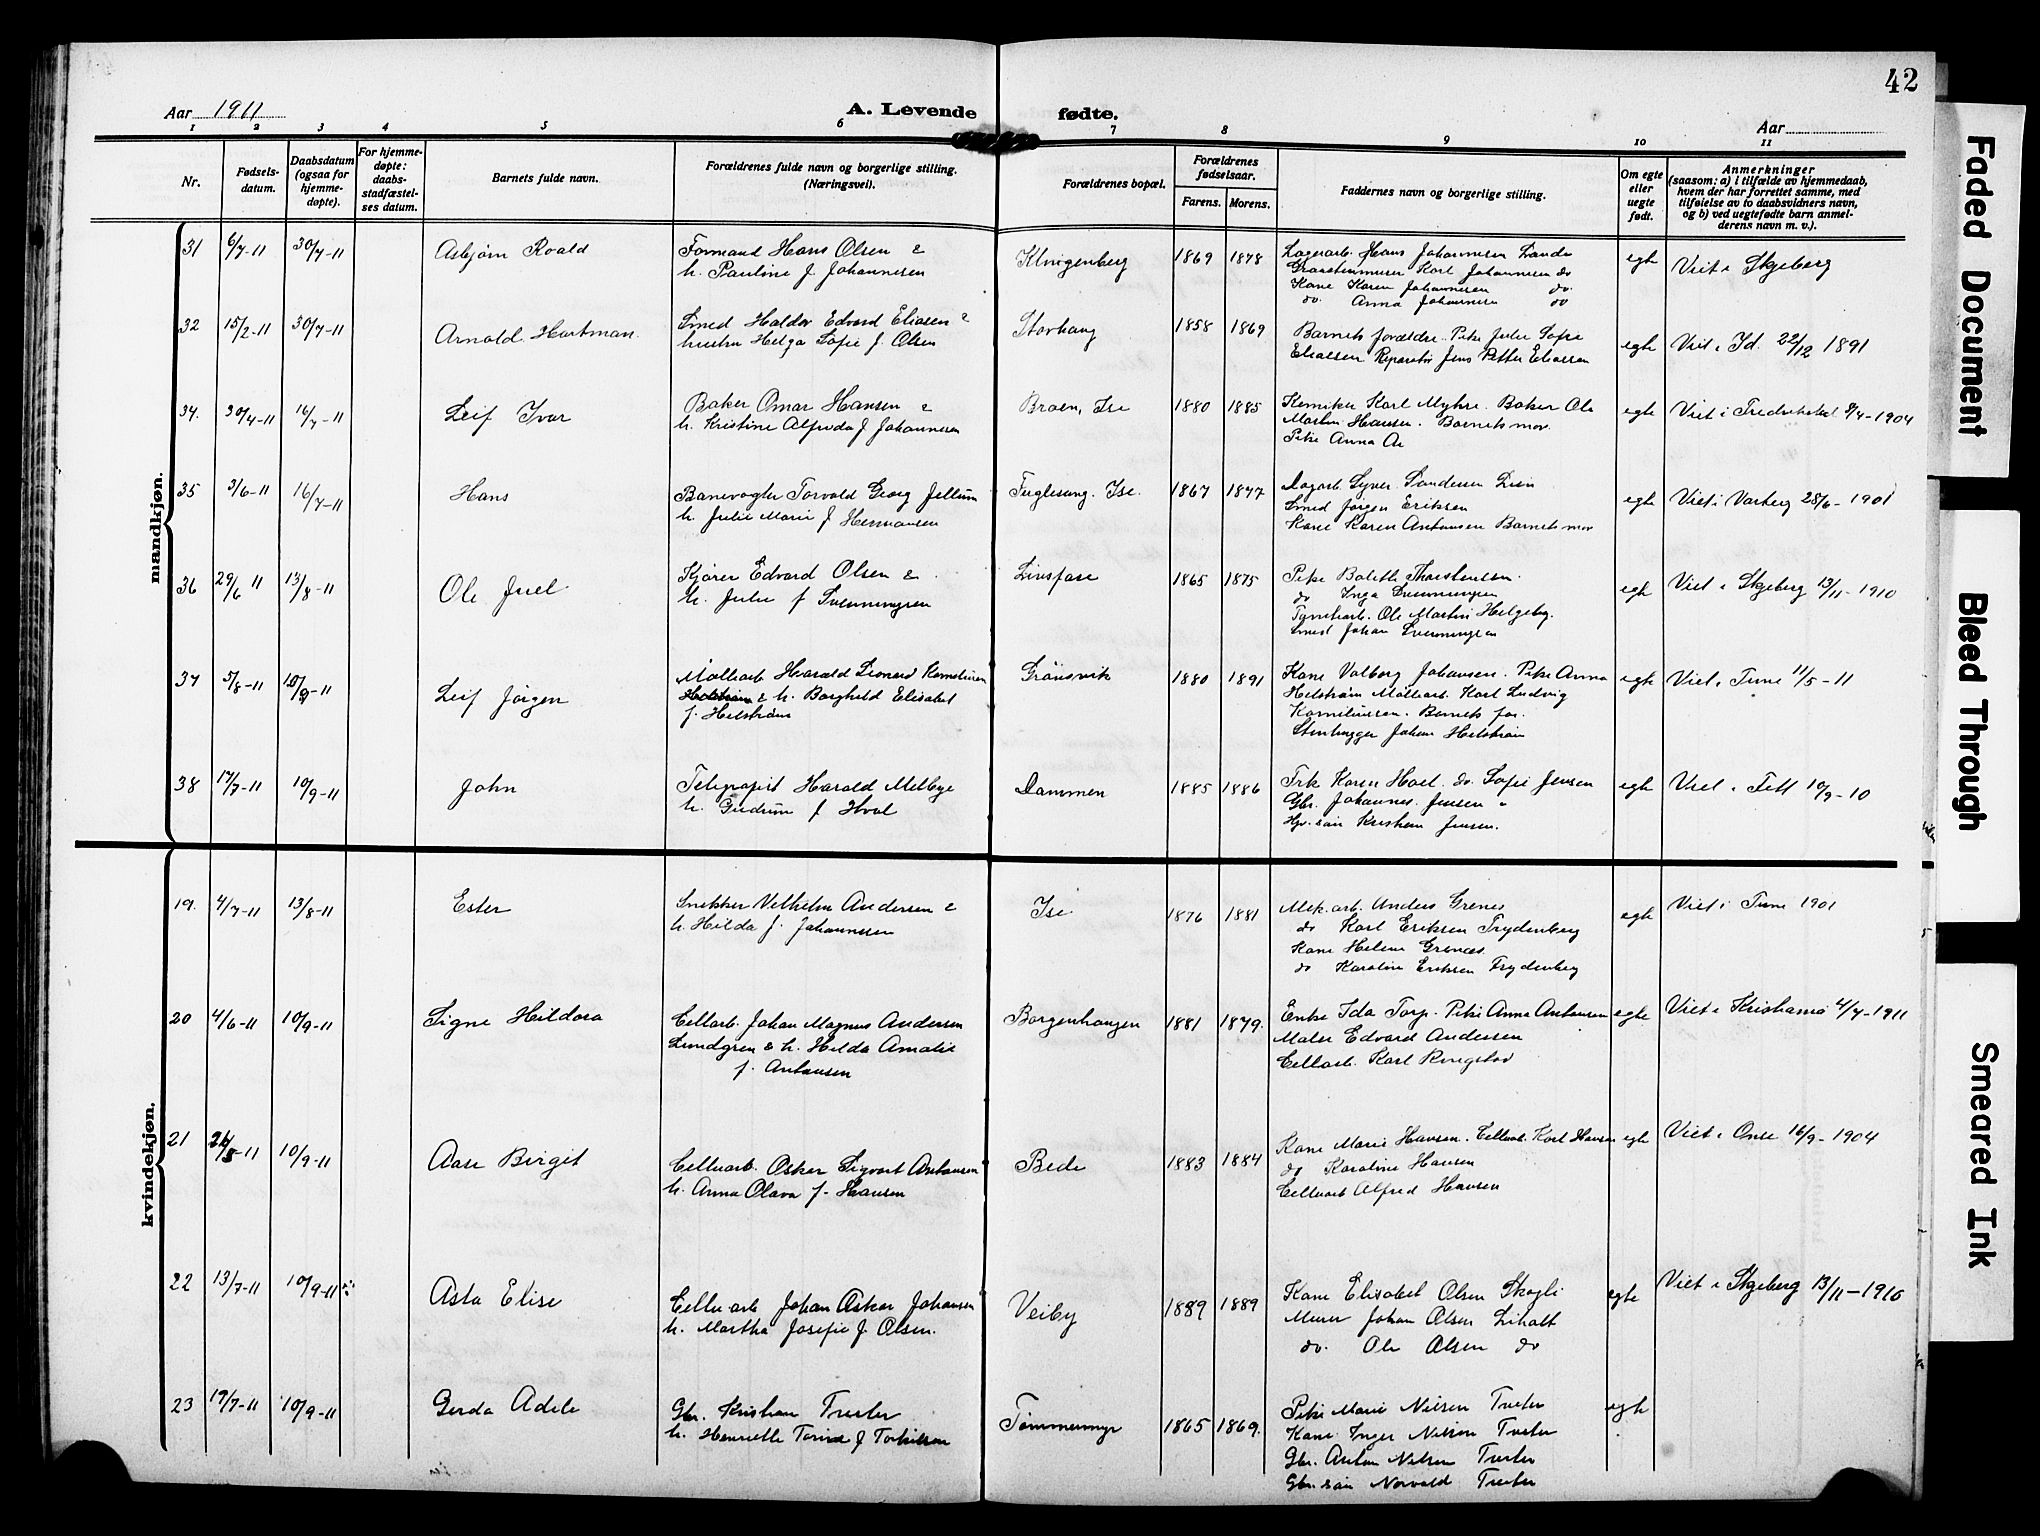 42
Aar 1911
A. Levende fødte.
Aar
1 2 3 4 5 6 7 8 9 10 11
Nr.
Fødsels-
datum.
Daabsdatum
(ogsaa for
hjemme-
døpte).
For hjemme-
døpte:
daabs-
stadfæstel-
ses datum.
Barnets fulde navn.
Forældrenes fulde navn og borgerlige stilling.
(Næringsvei).
Forældrenes bopæl.
Forældrenes
fødselsaar.
Farens. Morens.
Faddernes navn og borgerlige stilling.
Om egte
eller
uegte
født.
Anmerkninger
(saasom: a) i tilfælde av hjemmedaab,
hvem der har forrettet samme, med
tilføielse av to daabsvidners navn,
og b) ved uegtefødte barn anmel-
derens navn m. v.).
mandkjøn.
31 6/7-11 30/7-11 Asbjørn Roald
Formand Hans Olsen &
h. Pauline f Johannesen
Klingenberg 1869 1878
Lagerarb. Hans Johannesen Sande
Karl Johannesen do
Kone Karen Johannesen do.
do. Anna Johannesen do
egte Viet i Skjeberg
32 15/2-11 30/7-11 Arnold Hartman.
Smed Haldor Edvard Eliasen &
hustru Helga Sofie f. Olsen
Storhaug 1858 1869
Barnets forældre. Pike Julie Sofie
Eliassen Reparatør Jens Petter Eliassen
egte Viet i Id. 22/12 1891
34. 30/4-11 16/7-11 Leif Ivar
Baker Omar Hansen &
h. Kristine Alfreda f Johannesen
Braen, Ise 1880 1885
Kemiker Karl Myhre. Baker Ole
Martin Hansen. Barnets mor.
Pike Anna
egte Viet i Fredrikstad 9/4-1904
35 3/6-11 16/7-11 Hans
Banevogter Torvald Georg Jellum
h. Julie Marie f Hermansen
Fuglesang. Ise. 1867 1877
Dagarb. Syver Sandersen Lien
Smed Jørgen Eriksen
Kone Karen Antonsen Barnets mor
egte Viet i Varteig 28/6-1901
36 29/6 11 13/8-11 Ole Juel
Kjører Edvard Olsen &
h. Julie f Svenningsen
Linsfose 1865 1875
Pike Boletti Thorstensen.
do Inga Svenningsen
Tomtearb. Ole Martin Helgeby.
Smed Johan Svenningsen
egte Viet i Skjeberg 13/11-1910
37 5/8-11 10/9-11 Leif Jørgen
Møllearb Harald Leonard Kornelius
Helstrøm & h. Borghild Elisabet
f. Helstrøm
Grönsvik 1880 1891
Kone Valborg Johansen. Pike Anna
Helstrøm Møllearb. Karl Ludvig
Korneliussen. Barnets far.
Stenhugger Johan Helstrøm
egte Viet i Tune 11/5-11
38 17/7-11 10/9-11 John
Telegrafist Harald Melbye
h. Gudrun f Hval
Dammen 1885 1886
Frk Karen Hoel. do. Sofie Jensen
Gbr. Johannes Jensen "
Gbr. søn Kristian Jensen.
egte Viet i Fett 10/9-10
kvindekjøn.
19. 4/7-11 13/8-11 Ester
Snekker Vilhelm Andersen &
h. Hilda f. Johannesen
Ise 1876 1881
Mek. arb. Anders Grenes
do Karl Eriksen Frydenberg
Kone Helene Grenæs
do Karoline Eriksen Frydenberg
egte Viet i Tune 1901
20 4/6-11 10/9-11 Signe Hildora
Cellarb. Johan Magnus Andersen
Lundgren & h. Hilda Amalie
f. Antonsen
Borgenhaugen 1881 1879.
Enke Ida Torp. Pike Anna Antonsen
Maler Edvard Andersen
Cellarb. Karl Ringstad
egte Viet i Kristiania 4/7-1911
21 24/5-11 10/9-11 Aase Birgit
Cellarb. Oskar Sigvart Antonsen
h. Anna Olava f. Hansen
Bede 1883 1884
Kone Marie Hansen. Cellarb. Karl Hansen
do Karoline Hansen
Cellarb Alfred Hansen
egte Viet i Onsø 16/9-1904
22 13/7-11 10/9-11 Asta Elise
Cellarb Johan Oskar Johansen
h. Martha Josefie f. Olsen.
Veiby 1889 1889
Kone Elisabet Olsen Skogli
Murer Johan Olsen Liholt
do. Ole Olsen do
egte Viet i Skjeberg 13/11-1910
23 19/7-11 10/9-11 Gerda Adele
Gbr. Kristian Tveter
h. Henriette Torine f Torkilsen
Tømmermyr 1865 1869.
Pike Marie Nilsen Tveter
Kone Inger Nilsen Tveter
Gbr. Anton Nilsen Tveter
Gbr. søn Norvald Tveter
egte
Faded Document
Bleed Through
Smeared Ink